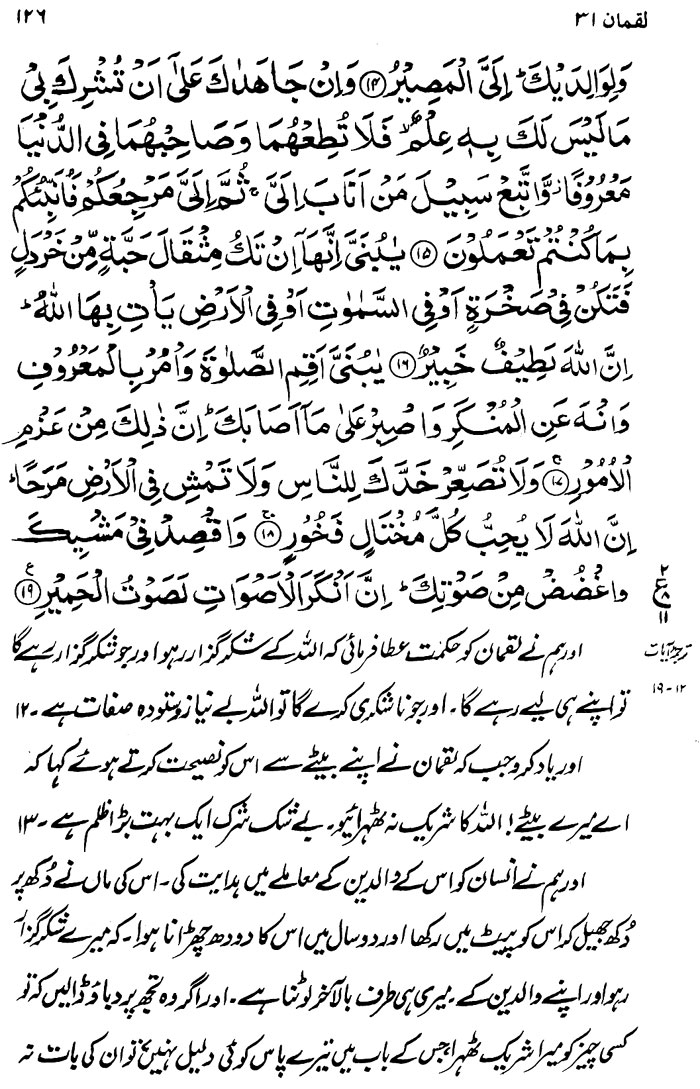 لقمان ۳۱ ۱۲۶
وَلِوَالِدَيْكَ ؕ إِلَيَّ الْمَصِيْرُ ﴿۱۴﴾ وَإِنْ جَاهَدٰكَ عَلٰٓى اَنْ تُشْرِكَ بِيْ
مَا لَيْسَ لَكَ بِهٖ عِلْمٌ ۙ فَلَا تُطِعْهُمَا وَصَاحِبْهُمَا فِي الدُّنْيَا
مَعْرُوْفًا ؗ وَّاتَّبِعْ سَبِيْلَ مَنْ اَنَابَ اِلَيَّ ۚ ثُمَّ اِلَيَّ مَرْجِعُكُمْ فَاُنَبِّئُكُمْ
بِمَا كُنْتُمْ تَعْمَلُوْنَ ﴿۱۵﴾ يٰبُنَيَّ اِنَّهَآ اِنْ تَكُ مِثْقَالَ حَبَّةٍ مِّنْ خَرْدَلٍ
فَتَكُنْ فِيْ صَخْرَةٍ اَوْ فِي السَّمٰوٰتِ اَوْ فِي الْاَرْضِ يَاْتِ بِهَا اللّٰهُ ؕ
اِنَّ اللّٰهَ لَطِيْفٌ خَبِيْرٌ ﴿۱۶﴾ يٰبُنَيَّ اَقِمِ الصَّلٰوةَ وَاْمُرْ بِالْمَعْرُوْفِ
وَانْهَ عَنِ الْمُنْكَرِ وَاصْبِرْ عَلٰى مَآ اَصَابَكَ ؕ اِنَّ ذٰلِكَ مِنْ عَزْمِ
الْاُمُوْرِ ﴿۱۷﴾ۚ وَلَا تُصَعِّرْ خَدَّكَ لِلنَّاسِ وَلَا تَمْشِ فِي الْاَرْضِ مَرَحًا ؕ
اِنَّ اللّٰهَ لَا يُحِبُّ كُلَّ مُخْتَالٍ فَخُوْرٍ ﴿۱۸﴾ۚ وَاقْصِدْ فِيْ مَشْيِكَ
وَاغْضُضْ مِنْ صَوْتِكَ ؕ اِنَّ اَنْكَرَ الْاَصْوَاتِ لَصَوْتُ الْحَمِيْرِ ﴿۱۹﴾ع
۲ ع ۸ ۱۱
ترجمۂ آیات
۱۲-۱۹
اور ہم نے لقمان کو حکمت عطا فرمائی کہ اللہ کے شکرگزار رہو اور جو شکرگزار رہے گا
تو اپنے ہی لیے رہے گا۔ اور جو ناشکری کرے گا تو اللہ بے نیاز و ستودہ صفات ہے۔ ۱۲
اور یاد کرو جب کہ لقمان نے اپنے بیٹے سے اس کو نصیحت کرتے ہوئے کہا کہ
اے میرے بیٹے! اللہ کا شریک نہ ٹھہرائیو۔ بے شک شرک ایک بہت بڑا ظلم ہے۔ ۱۳
اور ہم نے انسان کو اس کے والدین کے معاملے میں ہدایت کی۔ اس کی ماں نے دُکھ پر
دُکھ جھیل کر اس کو پیٹ میں رکھا اور دو سال میں اس کا دودھ چھڑانا ہوا۔ کہ میرے شکرگزار
رہو اور اپنے والدین کے۔ میری ہی طرف بالآخر لوٹنا ہے۔ اور اگر وہ تجھ پر دباؤ ڈالیں کہ تو
کسی چیز کو میرا شریک ٹھہرا جس کے باب میں تیرے پاس کوئی دلیل نہیں تو ان کی بات نہ